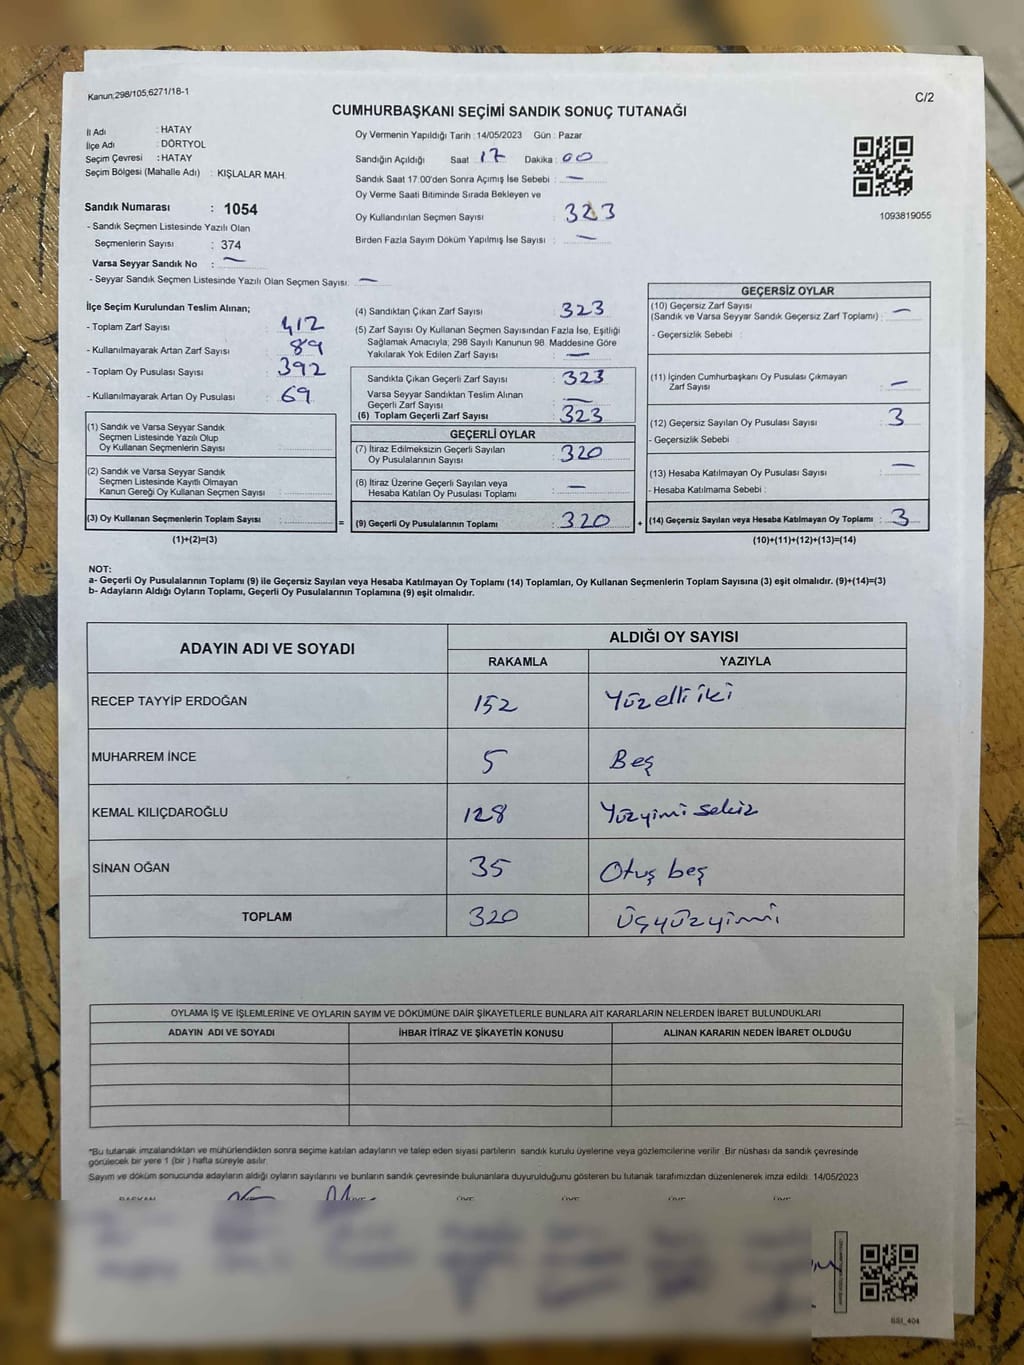 Kanun,298/105,6271/18-1
C/2
CUMHURBAŞKANI SEÇİMİ SANDIK SONUÇ TUTANAĞI
İl Adı : HATAY
İlçe Adı : DÖRTYOL
Seçim Çevresi : HATAY
Seçim Bölgesi (Mahalle Adı) : KIŞLALAR MAH.
Oy Vermenin Yapıldığı Tarih : 14/05/2023 Gün : Pazar
Sandığın Açıldığı Saat 17 Dakika : 00
Sandık Saat 17:00'den Sonra Açımış İse Sebebi : —
Oy Verme Saati Bitiminde Sırada Bekleyen ve
Oy Kullandırılan Seçmen Sayısı : 323
Birden Fazla Sayım Döküm Yapılmış İse Sayısı : —
1093819055
Sandık Numarası : 1054
- Sandık Seçmen Listesinde Yazılı Olan
Seçmenlerin Sayısı : 374
Varsa Seyyar Sandık No : —
- Seyyar Sandık Seçmen Listesinde Yazılı Olan Seçmen Sayısı: —
İlçe Seçim Kurulundan Teslim Alınan;
- Toplam Zarf Sayısı : 412
- Kullanılmayarak Artan Zarf Sayısı : 89
- Toplam Oy Pusulası Sayısı : 392
- Kullanılmayarak Artan Oy Pusulası : 69
(1) Sandık ve Varsa Seyyar Sandık
Seçmen Listesinde Yazılı Olup
Oy Kullanan Seçmenlerin Sayısı :
(2) Sandık ve Varsa Seyyar Sandık
Seçmen Listesinde Kayıtlı Olmayan
Kanun Gereği Oy Kullanan Seçmen Sayısı :
(3) Oy Kullanan Seçmenlerin Toplam Sayısı :
(1)+(2)=(3)
(4) Sandıktan Çıkan Zarf Sayısı : 323
(5) Zarf Sayısı Oy Kullanan Seçmen Sayısından Fazla İse, Eşitliği
Sağlamak Amacıyla; 298 Sayılı Kanunun 98. Maddesine Göre
Yakılarak Yok Edilen Zarf Sayısı : —
Sandıkta Çıkan Geçerli Zarf Sayısı : 323
Varsa Seyyar Sandıktan Teslim Alınan
Geçerli Zarf Sayısı : —
(6) Toplam Geçerli Zarf Sayısı : 323
GEÇERLİ OYLAR
(7) İtiraz Edilmeksizin Geçerli Sayılan
Oy Pusulalarının Sayısı : 320
(8) İtiraz Üzerine Geçerli Sayılan veya
Hesaba Katılan Oy Pusulası Toplamı : —
= (9) Geçerli Oy Pusulalarının Toplamı : 320 +
GEÇERSİZ OYLAR
(10) Geçersiz Zarf Sayısı
(Sandık ve Varsa Seyyar Sandık Geçersiz Zarf Toplamı) : —
- Geçersizlik Sebebi :
(11) İçinden Cumhurbaşkanı Oy Pusulası Çıkmayan
Zarf Sayısı : —
(12) Geçersiz Sayılan Oy Pusulası Sayısı : 3
- Geçersizlik Sebebi
(13) Hesaba Katılmayan Oy Pusulası Sayısı : —
- Hesaba Katılmama Sebebi :
(14) Geçersiz Sayılan veya Hesaba Katılmayan Oy Toplamı : 3
(10)+(11)+(12)+(13)=(14)
NOT:
a- Geçerli Oy Pusulalarının Toplamı (9) ile Geçersiz Sayılan veya Hesaba Katılmayan Oy Toplamı (14) Toplamları, Oy Kullanan Seçmenlerin Toplam Sayısına (3) eşit olmalıdır. (9)+(14)=(3)
b- Adayların Aldığı Oyların Toplamı, Geçerli Oy Pusulalarının Toplamına (9) eşit olmalıdır.
ADAYIN ADI VE SOYADI ALDIĞI OY SAYISI
RAKAMLA YAZIYLA
RECEP TAYYİP ERDOĞAN 152 Yüzelli iki
MUHARREM İNCE 5 Beş
KEMAL KILIÇDAROĞLU 128 Yüzyimi sekiz
SİNAN OĞAN 35 Otuş beş
TOPLAM 320 Üçyüzyimi
OYLAMA İŞ VE İŞLEMLERİNE VE OYLARIN SAYIM VE DÖKÜMÜNE DAİR ŞİKAYETLERLE BUNLARA AİT KARARLARIN NELERDEN İBARET BULUNDUKLARI
ADAYIN ADI VE SOYADI İHBAR İTİRAZ VE ŞİKAYETİN KONUSU ALINAN KARARIN NEDEN İBARET OLDUĞU
*Bu tutanak imzalandıktan ve mühürlendikten sonra seçime katılan adayların ve talep eden siyasi partilerin sandık kurulu üyelerine veya gözlemcilerine verilir. Bir nüshası da sandık çevresinde
görülecek bir yere 1 (bir ) hafta süreyle asılır.
Sayım ve döküm sonucunda adayların aldığı oyların sayılarını ve bunların sandık çevresinde bulunanlara duyurulduğunu gösteren bu tutanak tarafımızdan düzenlenerek imza edildi. 14/05/2023
BAŞKAN ÜYE ÜYE ÜYE ÜYE
SSI_404